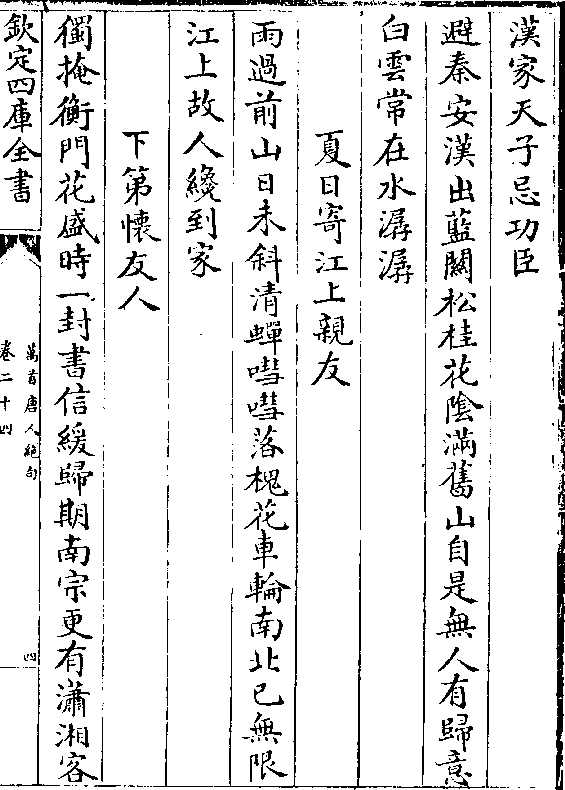 漢家天子忌功臣
避秦安漢出藍關松桂花陰滿舊山自是無人有歸意
白雲常在水潺潺
夏日寄江上親友
雨過前山日未斜清蟬嘒嘒落槐花車輪南北已無限
江上故人纔到家
下第懷友人
獨掩衡門花盛時一封書信緩歸期南宗更有瀟湘客
欽定四庫全書
萬首唐人絶句
卷二十四
四